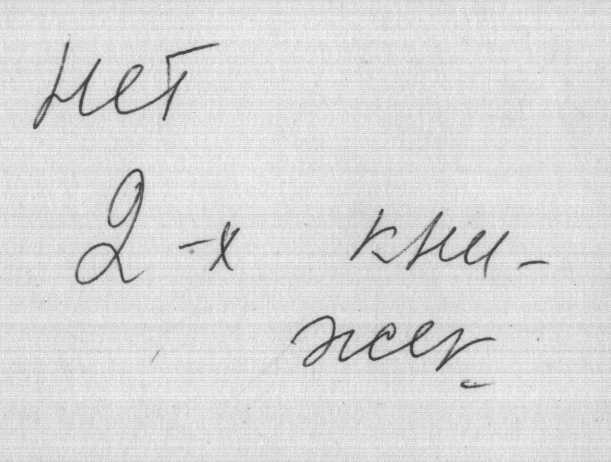 нет
2-х кни-
жек